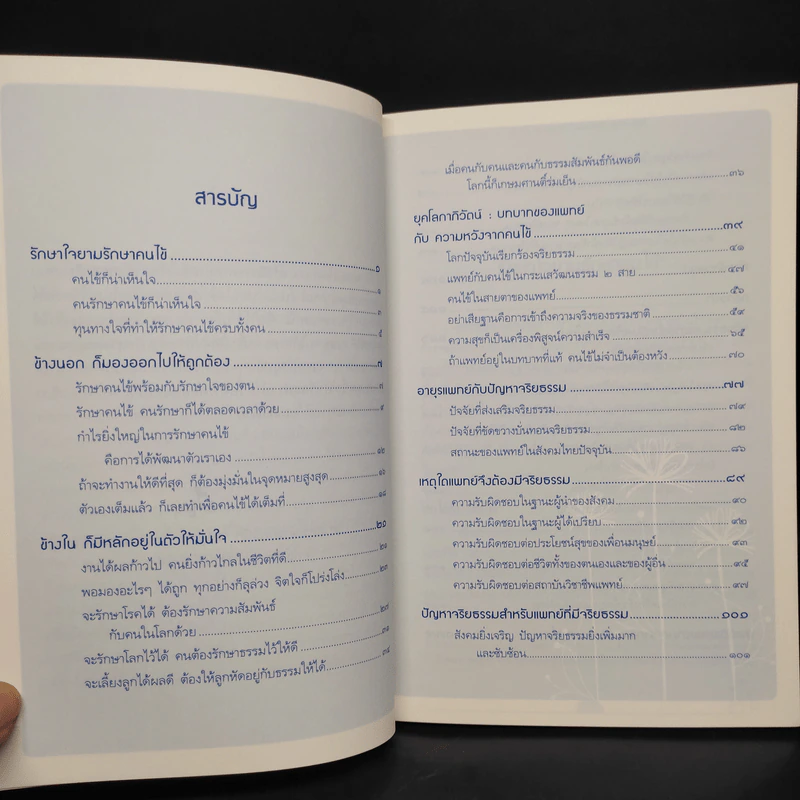 สารบัญ
รักษาใจยามรักษาคนไข้ ๑
คนไข้ก็น่าเห็นใจ ๑
คนรักษาคนไข้ก็น่าเห็นใจ ๓
ทุนทางใจที่ทำให้รักษาคนไข้ครบทั้งคน ๕
ข้างนอก ก็มองออกไปให้ถูกต้อง ๗
รักษาคนไข้พร้อมกับรักษาใจของตน ๗
รักษาคนไข้ คนรักษาก็ได้ตลอดเวลาด้วย ๙
กำไรยิ่งใหญ่ในการรักษาคนไข้
คือการได้พัฒนาตัวเราเอง ๑๒
ถ้าจะทำงานให้ดีที่สุด ก็ต้องมุ่งมั่นในจุดหมายสูงสุด ๑๖
ตัวเองเต็มแล้ว ก็เลยทำเพื่อคนไข้ได้เต็มที่ ๑๘
ข้างใน ก็มีหลักอยู่ในตัวให้มั่นใจ ๒๑
งานได้ผลก้าวไป คนยิ่งก้าวไกลในชีวิตที่ดี ๒๑
พอมองอะไรๆ ได้ถูก ทุกอย่างก็ลุล่วง จิตใจก็โปร่งโล่ง ๒๓
จะรักษาโรคได้ ต้องรักษาความสัมพันธ์
กับคนในโลกด้วย ๒๗
จะรักษาโลกไว้ได้ คนต้องรักษาธรรมไว้ให้ดี ๓๑
จะเลี้ยงลูกได้ผลดี ต้องให้ลูกหัดอยู่กับธรรมให้ได้ ๓๔
เมื่อคนกับคนและคนกับธรรมสัมพันธ์กันพอดี
โลกนี้ก็เกษมศานติ์ร่มเย็น ๓๖
ยุคโลกาภิวัตน์ : บทบาทของแพทย์
กับ ความหวังจากคนไข้ ๓๙
โลกปัจจุบันเรียกร้องจริยธรรม ๔๑
แพทย์กับคนไข้ในกระแสวัฒนธรรม ๒ สาย ๔๗
คนไข้ในสายตาของแพทย์ ๕๖
อย่าเสียฐานคือการเข้าถึงความจริงของธรรมชาติ ๕๙
ความสุขก็เป็นเครื่องพิสูจน์ความสำเร็จ ๖๕
ถ้าแพทย์อยู่ในบทบาทที่แท้ คนไข้ไม่จำเป็นต้องหวัง ๗๐
อายุรแพทย์กับปัญหาจริยธรรม ๗๗
ปัจจัยที่ส่งเสริมจริยธรรม ๗๙
ปัจจัยที่ขัดขวางบั่นทอนจริยธรรม ๘๒
สถานะของแพทย์ในสังคมไทยปัจจุบัน ๘๖
เหตุใดแพทย์จึงต้องมีจริยธรรม ๘๙
ความรับผิดชอบในฐานะผู้นำของสังคม ๙๐
ความรับผิดชอบในฐานะผู้ได้เปรียบ ๙๒
ความรับผิดชอบต่อประโยชน์สุขของเพื่อนมนุษย์ ๙๓
ความรับผิดชอบต่อชีวิตทั้งของตนเองและของผู้อื่น ๙๕
ความรับผิดชอบต่อสถาบันวิชาชีพแพทย์ ๙๗
ปัญหาจริยธรรมสำหรับแพทย์ที่มีจริยธรรม ๑๐๑
สังคมยิ่งเจริญ ปัญหาจริยธรรมยิ่งเพิ่มมาก
และซับซ้อน ๑๐๑